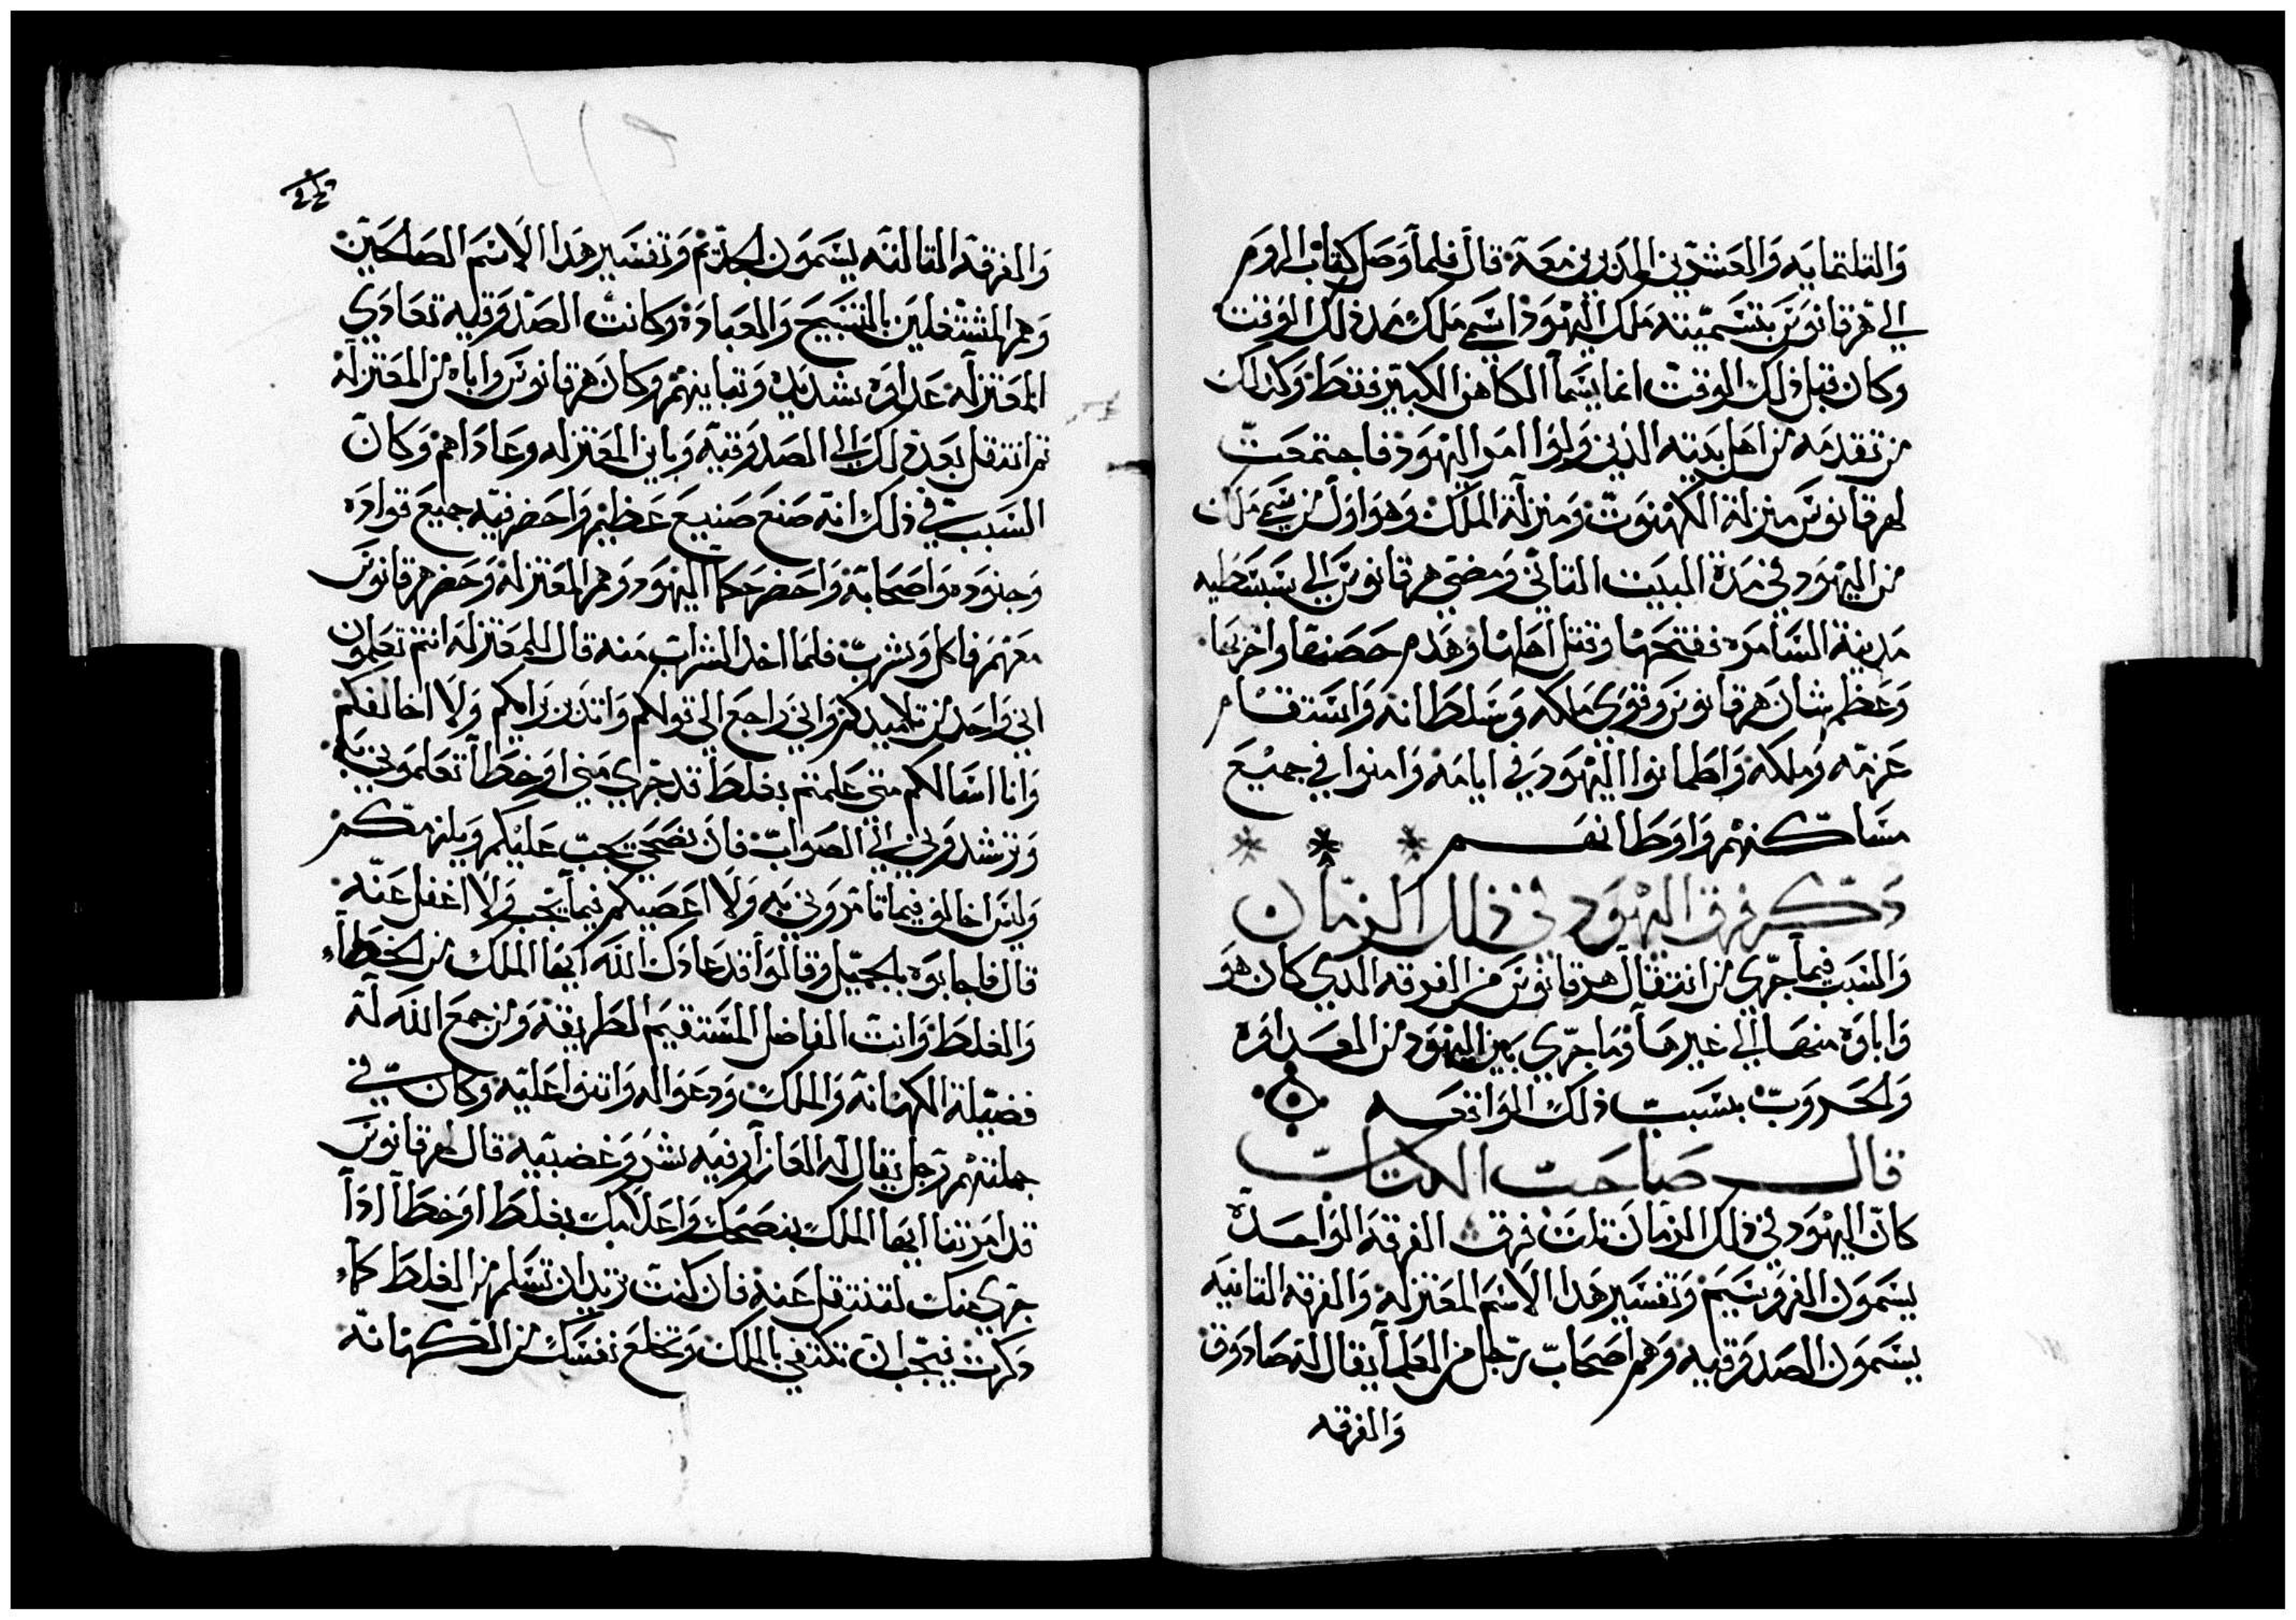 والتلتمايه والعشرين الدين معه قال فلما وصل كتاب الروم
الى هرقانوس بتسميته ملك اليهود اسمي ملك مند ذلك الوقت
وكان قبل ذلك الوقت انما يسما الكاهن الكبير فقط وكذلك
من تقدمه من اهل بيته الذين ولوا امر اليهود فاجتمعت
لهرقانوس منزلة الكهنوت ومنزلة الملك وهو اول من سمي ملك
من اليهود في مدة البيت التاني ومضى هرقانوس الى سبسطيه
مدينة السامره ففتحها وقتل اهلها وهدم حصنها واخربها
وعظم شان هرقانوس وقوى ملكه وسلطانه واستقام
عزمه وملكه واطمانوا اليهود في ايامه وامنوا في جميع
مساكنهم واوطانهم
ذكر فرق اليهود في ذلك الزمان
والسبب فيما جرى من انتقال هرقانوس من الفرقه الدي كان هو
واباوه منها الى غيرها وما جرى بين اليهود من العداوه
والحروب بسبب ذلك الواقعه
قال صاحب الكتاب
كان اليهود في ذلك الزمان تلت فرق الفرقه الواحده
يسمون الفروسيم وتفسير هدا الاسم المعتزله والفرقه التانيه
يسمون الصدوقيه وهم اصحاب رجل من العلما يقال له صادوق
والفرقه
والفرقه التالته يسمون الحديم وتفسير هدا الاسم الصالحين
وهم المشتغلين بالتسبيح والعباده وكانت الصدوقيه تعادي
المعتزله عداوه شديده وتباينهم وكان هرقانوس واباه من المعتزله
تم انتقل بعد ذلك الى الصدوقيه وباين المعتزله وعاداهم وكان
السبب في ذلك انه صنع صنيع عظيم واحضر فيه جميع قواده
وجنوده واصحابه واحضر حكما اليهود وهم المعتزله وحضر هرقانوس
معهم فاكل وشرب فلما اخد الشراب منه قال للمعتزله انتم تعلمون
اني واحد من تلاميدكم واني راجع الى قولكم واتدبر برايكم ولا اخالفكم
وانا اسالكم متى علمتم بغلط قد جرى مني او خطا تعلموني به
وترشدوني الى الصواب فان نصحي يجب عليكم ويلزمكم
وليس اخالف فيما تامروني به ولا اعصيكم فيما يجب ولا اغفل عنه
قال فاجابوه بالجميل وقالوا قد عادك الله ايها الملك من الخطا
والغلط وانت الفاضل المستقيم الطريقه ومن جمع الله له
فضيلة الكهانه والملك ودعوا له واتنوا عليه وكان في
جملتهم رجل يقال له العازار فيه شر وغضبيه قال لهرقانوس
قد امرتنا ايها الملك بنصحك واعلامك بغلط او خطا اذا
جرى منك لتنتقل عنه فان كنت تريد ان تسلم من الغلط كما
دكرت فيجب ان تكتفي بالملك وتخلع نفسك من الكهانه